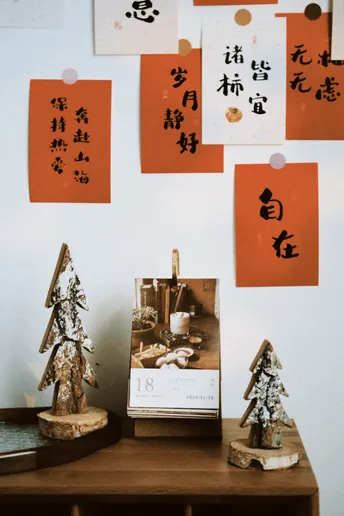 息
保持热爱
奔赴山海
岁月
静好
诸柿
皆宜
无
无虑
自在
18